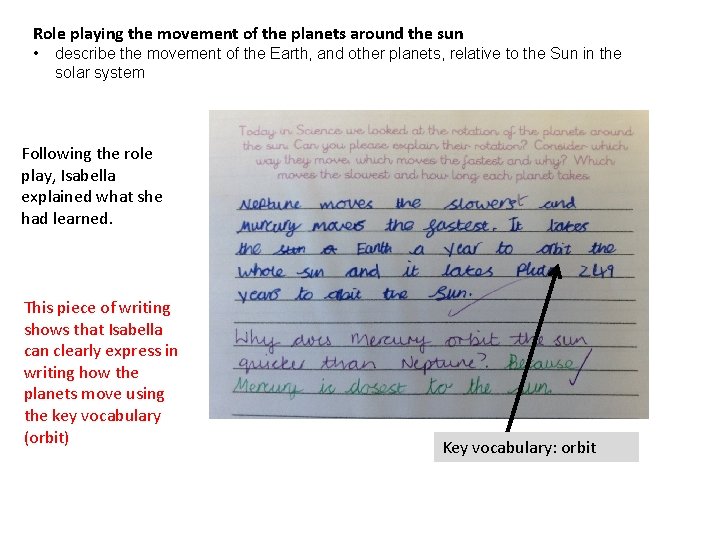 Role playing the movement of the planets around the sun
• describe the movement of the Earth, and other planets, relative to the Sun in the
solar system
Following the role
play, Isabella
explained what she
had learned.
This piece of writing
shows that Isabella
can clearly express in
writing how the
planets move using
the key vocabulary
(orbit)
Today in Science we looked at the rotation of the planets around
the sun. Can you please explain their rotation? Consider which
way they move, which moves the fastest and why? Which
moves the slowest and how long each planet takes.
Neptune moves the slowerst and
Murcury moves the fastest. It takes
the Earth a year to orbit the
whole sun and it takes 249
years to orbit the sun.
Why does Mercury orbit the sun
quicker than Neptune? Because
Mercury is closest to the sun.
Key vocabulary: orbit